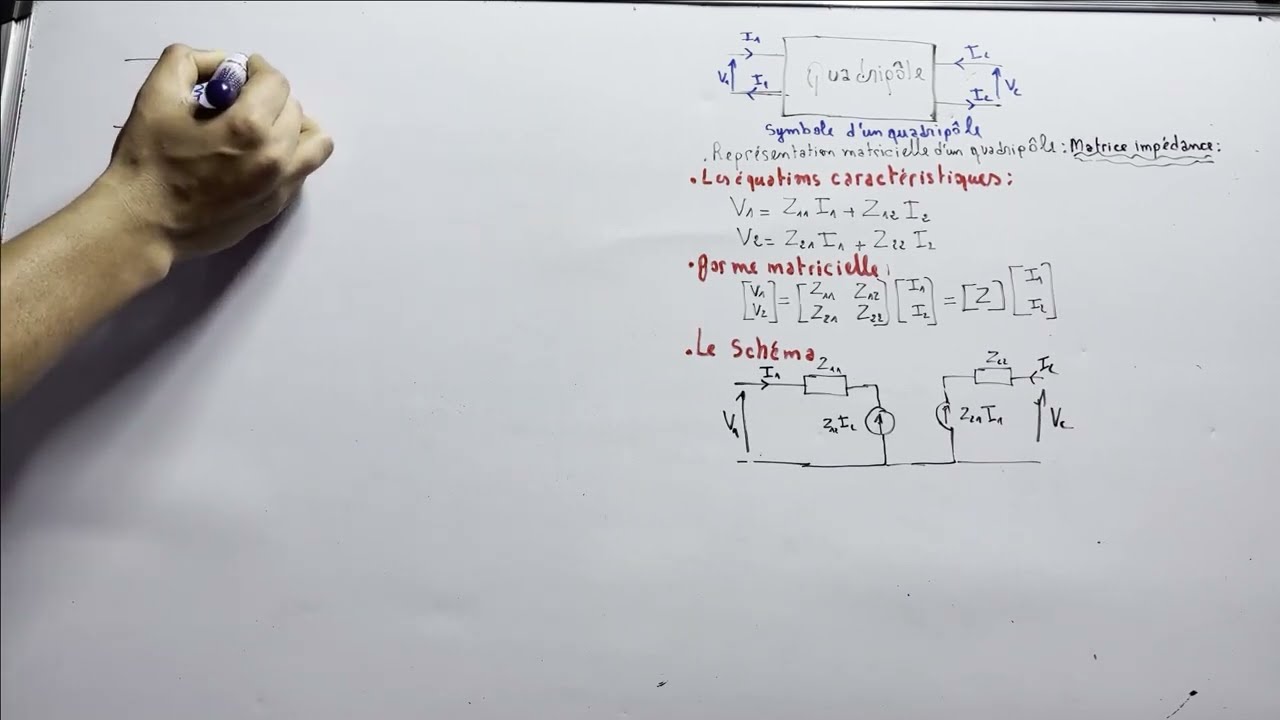 I₁ I₂
V₁ I₁ Quadripôle I₂ V₂
Symbole d'un quadripôle
. Représentation matricielle d'un quadripôle : Matrice impédance :
. Les équations caractéristiques :
V₁ = Z₁₁ I₁ + Z₁₂ I₂
V₂ = Z₂₁ I₁ + Z₂₂ I₂
. forme matricielle :
[V₁ V₂] = [Z₁₁ Z₁₂ Z₂₁ Z₂₂] [I₁ I₂] = [Z] [I₁ I₂]
. Le Schéma
I₁ Z₁₁ Z₂₂ I₂
V₁ Z₁₂ I₂ Z₂₁ I₁ V₂